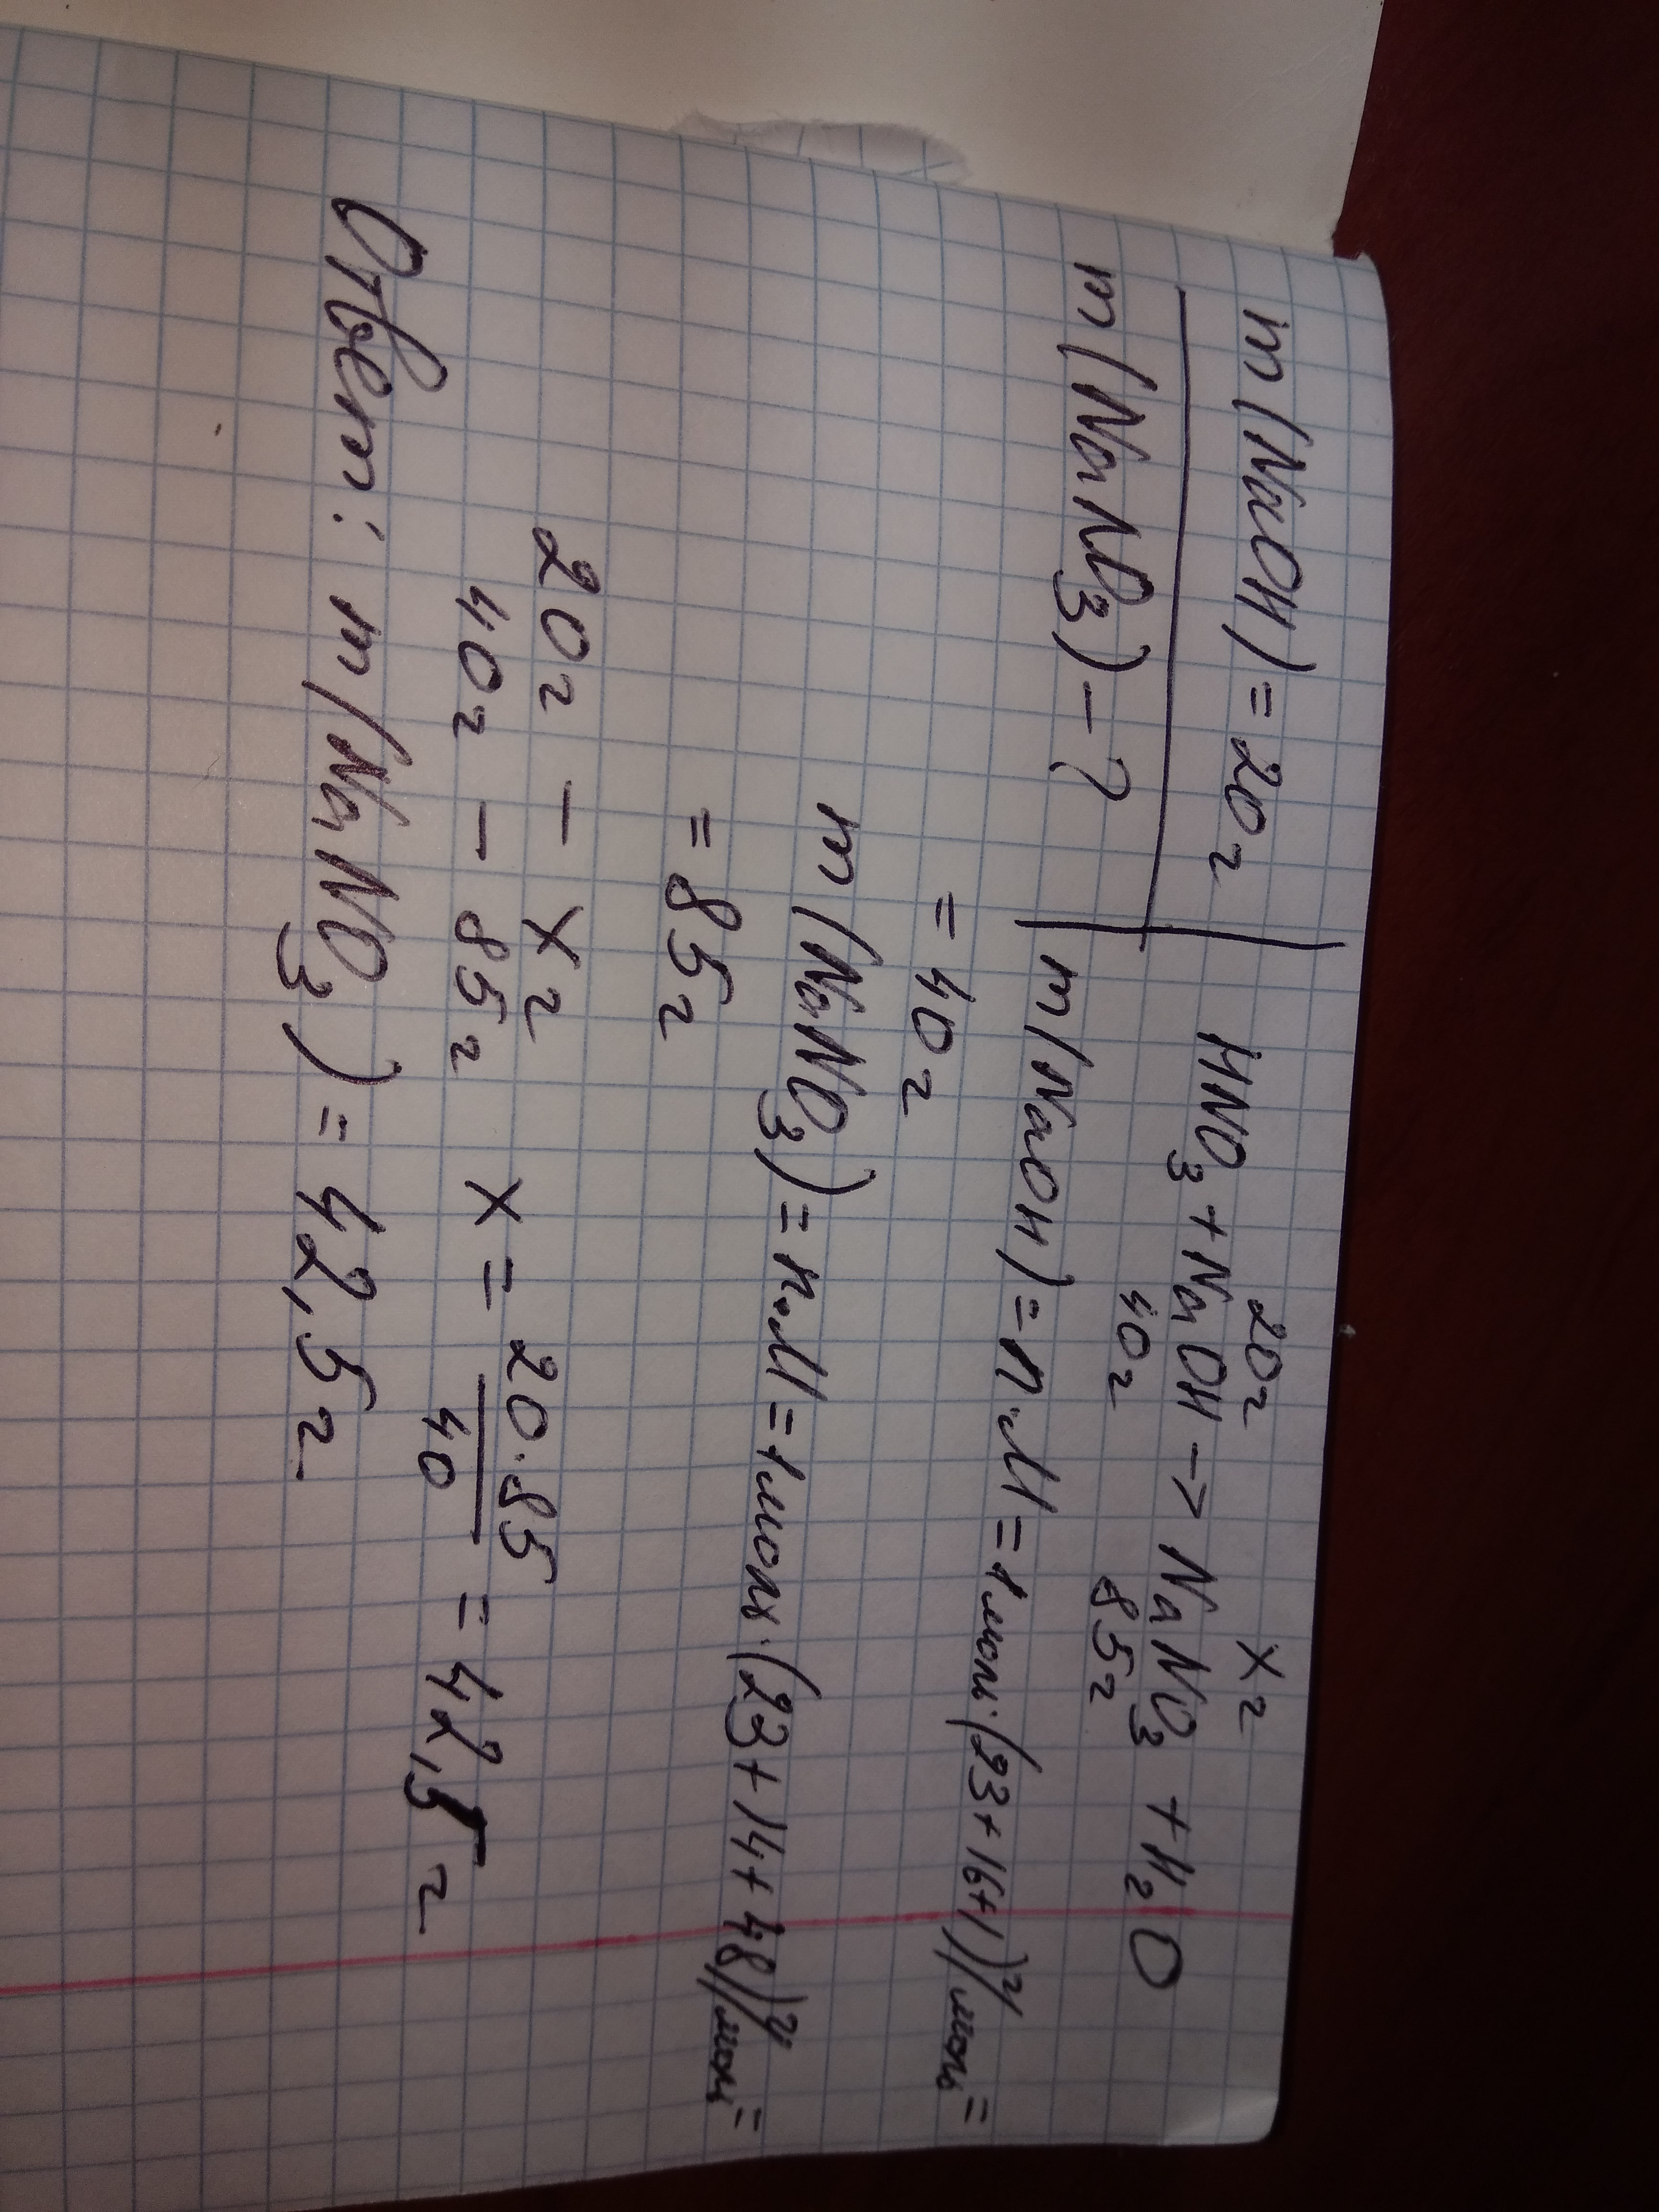 20г хг
m(NaOH)=20г HNO3+NaOH→NaNO3+H2O
40г 85г
m(NaNO3)-? m(NaOH)=n·M=1моль·(23+16+1)г/моль=
=40г
m(NaNO3)=n·M=1моль·(23+14+48)г/моль=
=85г
20г – хг
40г – 85г х=20·85/40=42,5г
Ответ: m(NaNO3)=42,5г